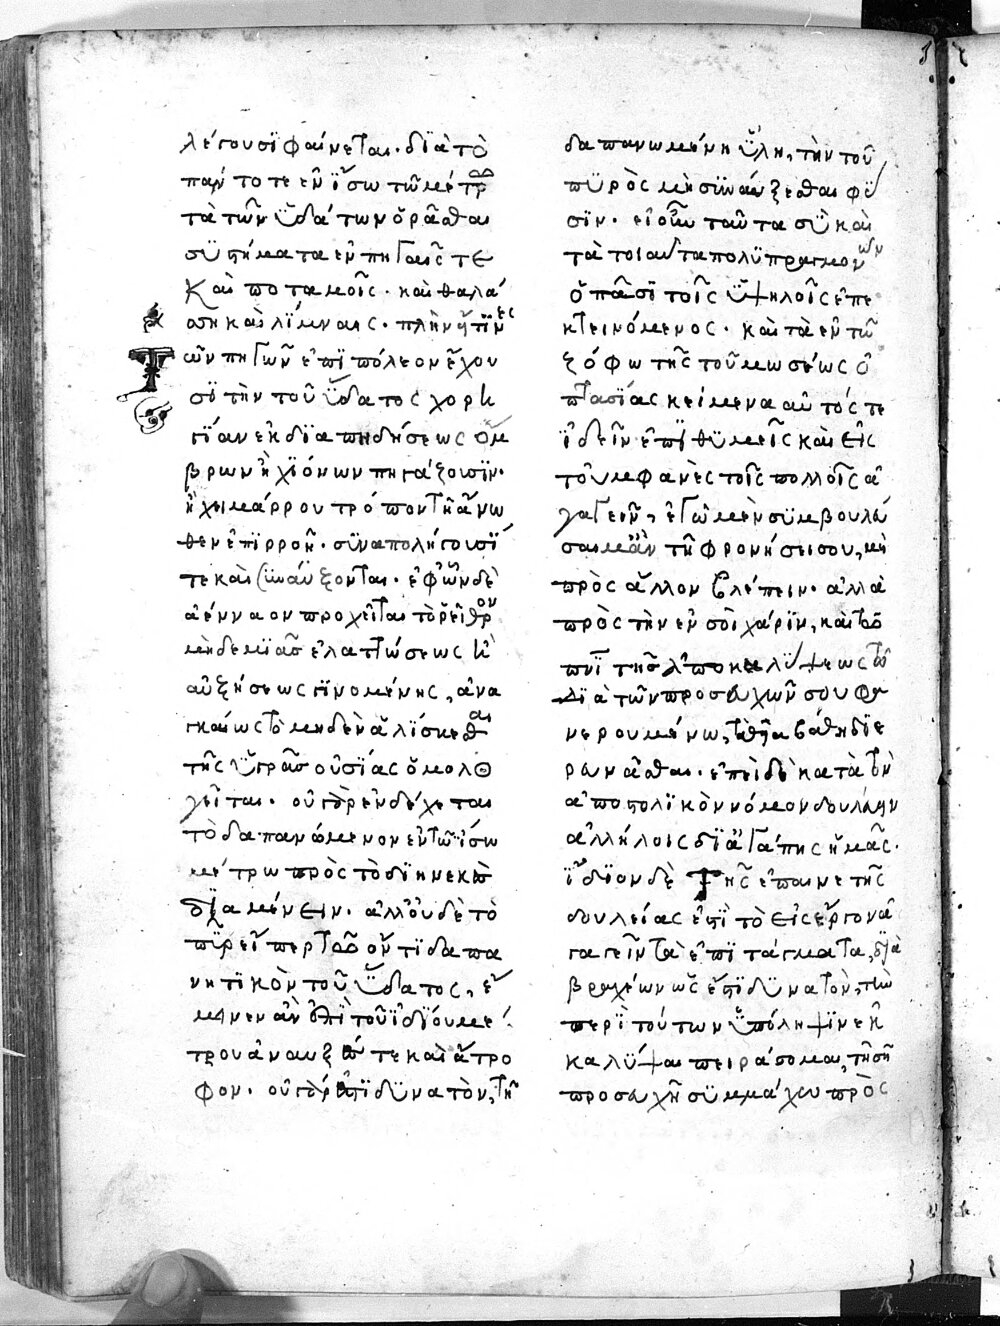 λέγουσϊ φαίνεται· δϊὰ τὸ
πάντοτε ἐν ἴσω τῶ μέτρ
τὰ τῶν ὑδάτων ὁρᾶσθαι
συστήματα ἐν πηγαῖς τε
καὶ ποταμοῖς· καὶ θαλά
σση καὶ λίμναις· πλὴν εἴ τινες
τῶν πηγῶν ἐπϊπόλεον ἔχου
σϊ τὴν τοῦ ὕδατος χορη
γΐαν ἐκ δϊαπηδήσεως ὄμ
βρων ἢ χϊόνων πηγάζουσϊν·
ἢ χειμάρρου τρόπον τῆ ἄνω
θεν ἐπϊρροῆ· συναπολήγουσϊ
τε καὶ συναύξονται· ἐφ' ὧν δὲ
ἀένναον προχεῖται τὸ ῥεῖθρον
μηδεμϊᾶς ἐλαττώσεως ἢ
αὐξήσεως γϊνομένης, ἀνα
γκαίως τὸ μηδὲν ἀλίσκεσθαι
τῆς ὑγρᾶς οὐσίας ὁμολο
γεῖται· οὐ γὰρ ἐνδέχεται
τὸ δαπανώμενον ἐν τῶ ἴσω
μέτρω πρὸς τὸ δϊηνεκὲς
δϊαμένειν· ἀλλ' οὐδὲ τὸ
πῦρ εἴπερ τοῦ ὄντϊ δαπα
νητϊκὸν τοῦ ὕδατος, ἔ
μεινεν ἂν ἐπὶ τοῦ ἰδίου μέ
τρου ἀναυξές τε καὶ ἄτρο
φον· οὐ γάρ ἐστϊ δυνατὸν, τῆ
δαπανωμένη ὕλη, τὴν τοῦ
πυρὸς μὴ συναύξεσθαι φύ
σϊν· εἰ οὖν ταῦτα σὺ καὶ
τὰ τοιαῦτα πολυπραγμονῶν
ὁ πᾶσϊ τοῖς ὑψηλοῖς ἐπε
κτεινόμενος· καὶ τὰ ἐν τῶ
ζόφω τῆς τοῦ μωσέως ὀ
πτασϊας κείμενα αὐτός τε
ἰδεῖν ἐπϊθυμεῖς καὶ εἰς
τοὐμφανὲς τοῖς πολλοῖς ἀ
γαγεῖν, ἐγὼ μὲν συμβουλεύ
σαιμ' ἂν τῆ φρονήσει σου, μὴ
πρὸς ἄλλον βλέπειν· ἀλλὰ
πρὸς τὴν ἐν σοὶ χάρϊν, καὶ τὸ
πνϊ τῆς ἀποκαλύψεως τῶ
διὰ τῶν προσευχῶν σου φα
νερουμένω, τὰ θεῖα βάθη διε
ρευνᾶσθαι· ἐπεὶ δὲ κατὰ τὸν
ἀποστολϊκὸν νόμον δουλεύειν
ἀλλήλοις δϊ' ἀγάπης ἡμᾶς·
ἴδϊον δὲ τῆς ἐπαινετῆς
δουλείας ἐστὶ τὸ εἰς ἔργον ἀ
γαγεῖν τὰ ἐπϊτάγματα, δϊὰ
βραχέων ὡς ἔστϊ δυνατὸν, τὴν
περὶ τούτων ὑπόληψϊν ἐκ
καλύψαι πειράσομαι, τῆ σῆ
προσευχῆ συμμάχου πρὸς